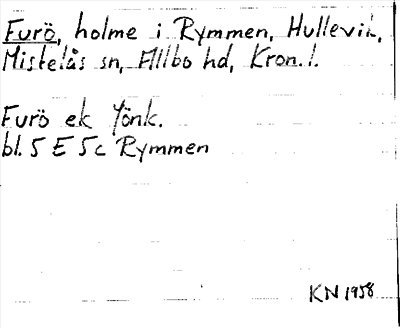 Furö, holme i Rymmen, Hullevik,
Mistelås sn, Allbo hd, Kron. l.
Furö ek Jönk.
bl. 5 E 5c Rymmen
KN 1958